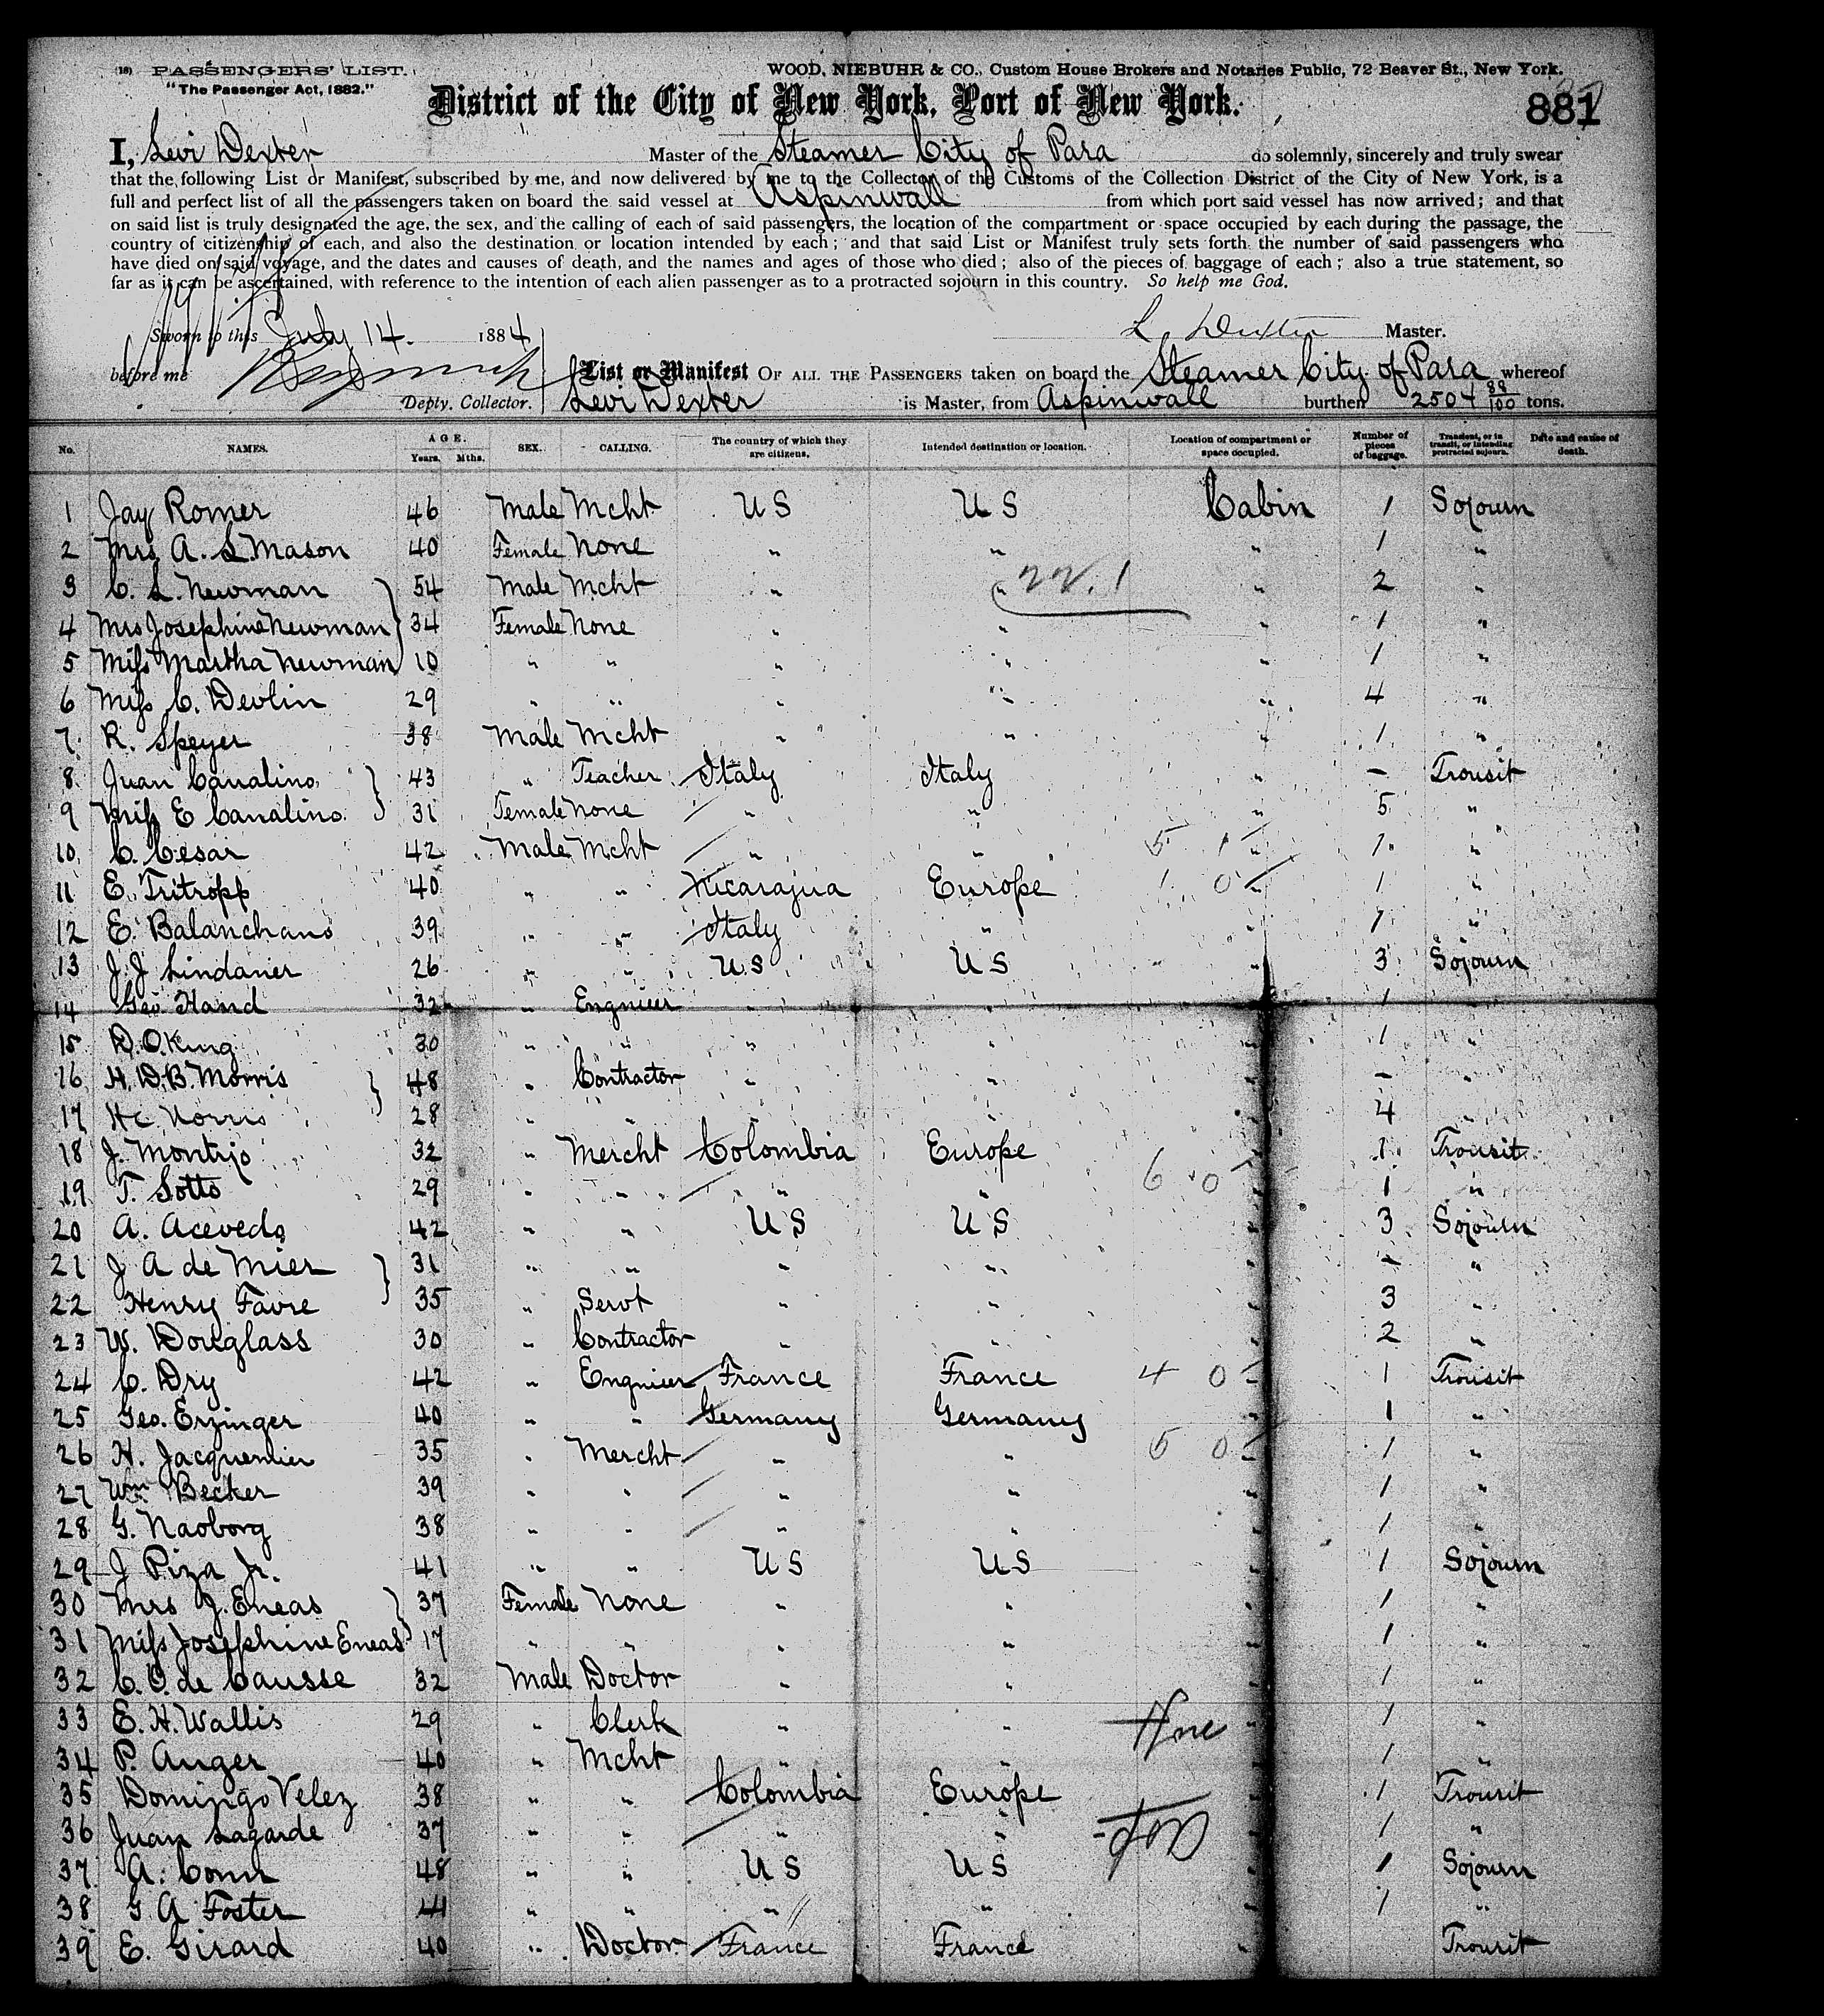 (18) PASSENGERS' LIST. WOOD, NIEBUHR & CO., Custom House Brokers and Notaries Public, 72 Beaver St., New York.
"The Passenger Act, 1882."
District of the City of New York, Port of New York. 881
I, Levi Dexter Master of the Steamer City of Para do solemnly, sincerely and truly swear
that the following List or Manifest, subscribed by me, and now delivered by me to the Collector of the Customs of the Collection District of the City of New York, is a
full and perfect list of all the passengers taken on board the said vessel at Aspinwall from which port said vessel has now arrived; and that
on said list is truly designated the age, the sex, and the calling of each of said passengers, the location of the compartment or space occupied by each during the passage, the
country of citizenship of each, and also the destination or location intended by each; and that said List or Manifest truly sets forth the number of said passengers who
have died on said voyage, and the dates and causes of death, and the names and ages of those who died; also of the pieces of baggage of each; also a true statement, so
far as it can be ascertained, with reference to the intention of each alien passenger as to a protracted sojourn in this country. So help me God.
Sworn to this July 14. 1884 L. Dexter Master.
before me List or Manifest OF ALL THE PASSENGERS taken on board the Steamer City of Para whereof
Depty. Collector. Levi Dexter is Master, from Aspinwall burthen 2504 88/100 tons.
No. NAMES. AGE. Years. Mths. SEX. CALLING. The country of which they are citizens. Intended destination or location. Location of compartment or space occupied. Number of pieces of baggage. Transient, or in transit, or intending protracted sojourn. Date and cause of death.
1 Jay Romer 46 Male Mcht U S U S Cabin 1 Sojourn
2 Mrs A. S. Mason 40 Female None " " " 1 "
3 C. L. Newman 54 Male Mcht " " 22.1 " 2 "
4 Mrs Josephine Newman 34 Female None " " " 1 "
5 Miss Martha Newman 10 " " " " " 1 "
6 Miss C. Devlin 29 " " " " " 4 "
7 R. Speyer 38 Male Mcht " " " 1 "
8 Juan Canalino 43 " Teacher Italy Italy " - Transit
9 Miss E Canalino 31 Female None " " " 5 "
10 C. Cesar 42 Male Mcht " " 5 1 " 1 "
11 E. Tritropp 40 " " Nicaragua Europe 1 0 " 1 "
12 E. Balanchans 39 " " Italy " " 1 "
13 J. J Lindaner 26 " " U.S U S " 3 Sojourn
14 Geo Hand 32 " Engineer " " " 1 "
15 D. O. King 30 " " " " " 1 "
16 H. D. B. Morris 48 " Contractor " " " - "
17 H C Norris 28 " " " " " 4 "
18 J. Montijo 32 " Mercht Colombia Europe " 1 Transit
19 T. Sotto 29 " " " " 6 0 " 1 "
20 A. Acevedo 42 " " U S U S " 3 Sojourn
21 J A de Mier 31 " " " " " - "
22 Henry Favre 35 " Servt " " " 3 "
23 W. Douglass 30 " Contractor " " " 2 "
24 C. Dry 42 " Engineer France France 4 0 " 1 Transit
25 Geo. Erzinger 40 " " Germany Germany " 1 "
26 H. Jacquemier 35 " Mercht " " 5 0 " 1 "
27 Wm Becker 39 " " " " " 1 "
28 G. Naoborg 38 " " " " " 1 "
29 J Piza Jr. 41 " " U S U S " 1 Sojourn
30 Mrs J. Eneas 37 Female None " " " 1 "
31 Miss Josephine Eneas 17 " " " " " 1 "
32 C. C. de Causse 32 Male Doctor " " " 1 "
33 E. H. Wallis 29 " Clerk " " " 1 "
34 P. Anger 40 " Mcht " " " 1 "
35 Domingo Velez 38 " " Colombia Europe " 1 Transit
36 Juan Lagarde 37 " " " " " 1 "
37 A. Conn 48 " " U S U S " 1 Sojourn
38 G A Foster 41 " " " " " 1 "
39 E. Girard 40 " Doctor France France " Transit